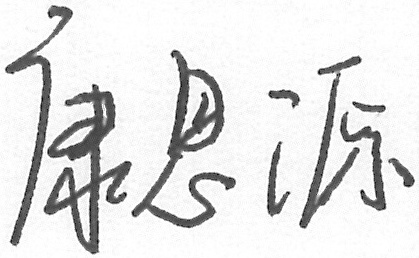 康思源